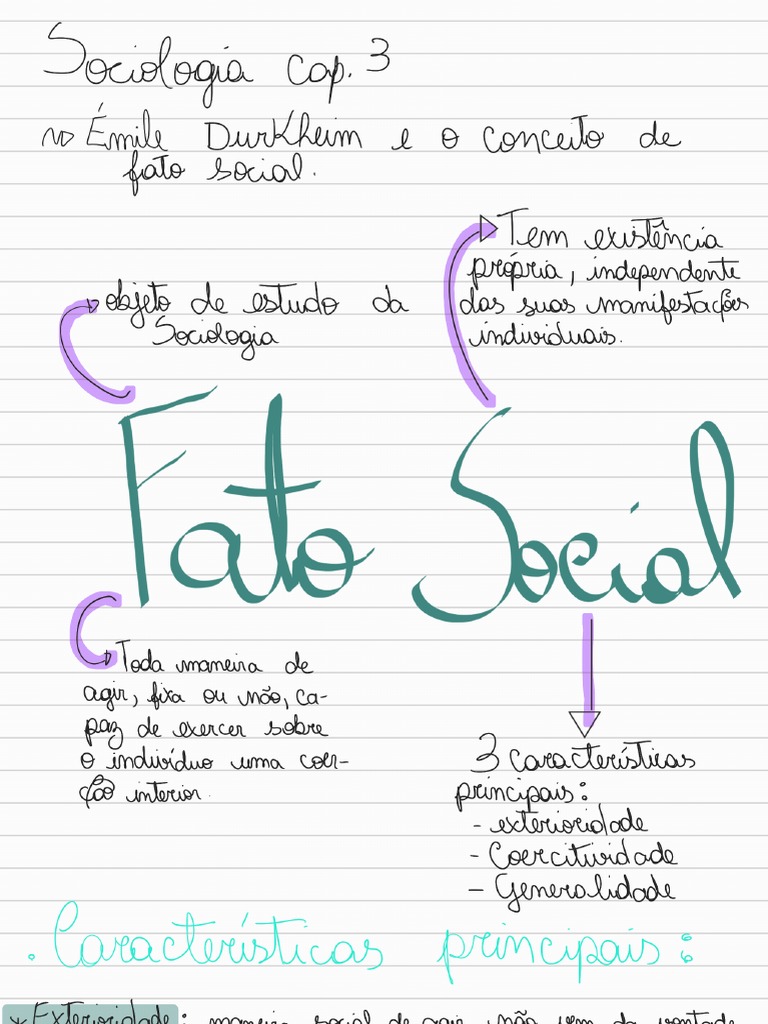 Sociologia cap. 3
Émile Durkheim e o conceito de
fato social.
Tem existência
própria, independente
das suas manifestações
individuais.
objeto de estudo da
Sociologia
Fato Social
Toda maneira de
agir, fixa ou não, ca-
paz de exercer sobre
o indivíduo uma coer-
ção interior.
3 características
principais:
- exterioridade
- Coercitividade
- Generalidade
. Características principais:
* Exterioridade: maneira social de agir não vem da vontade